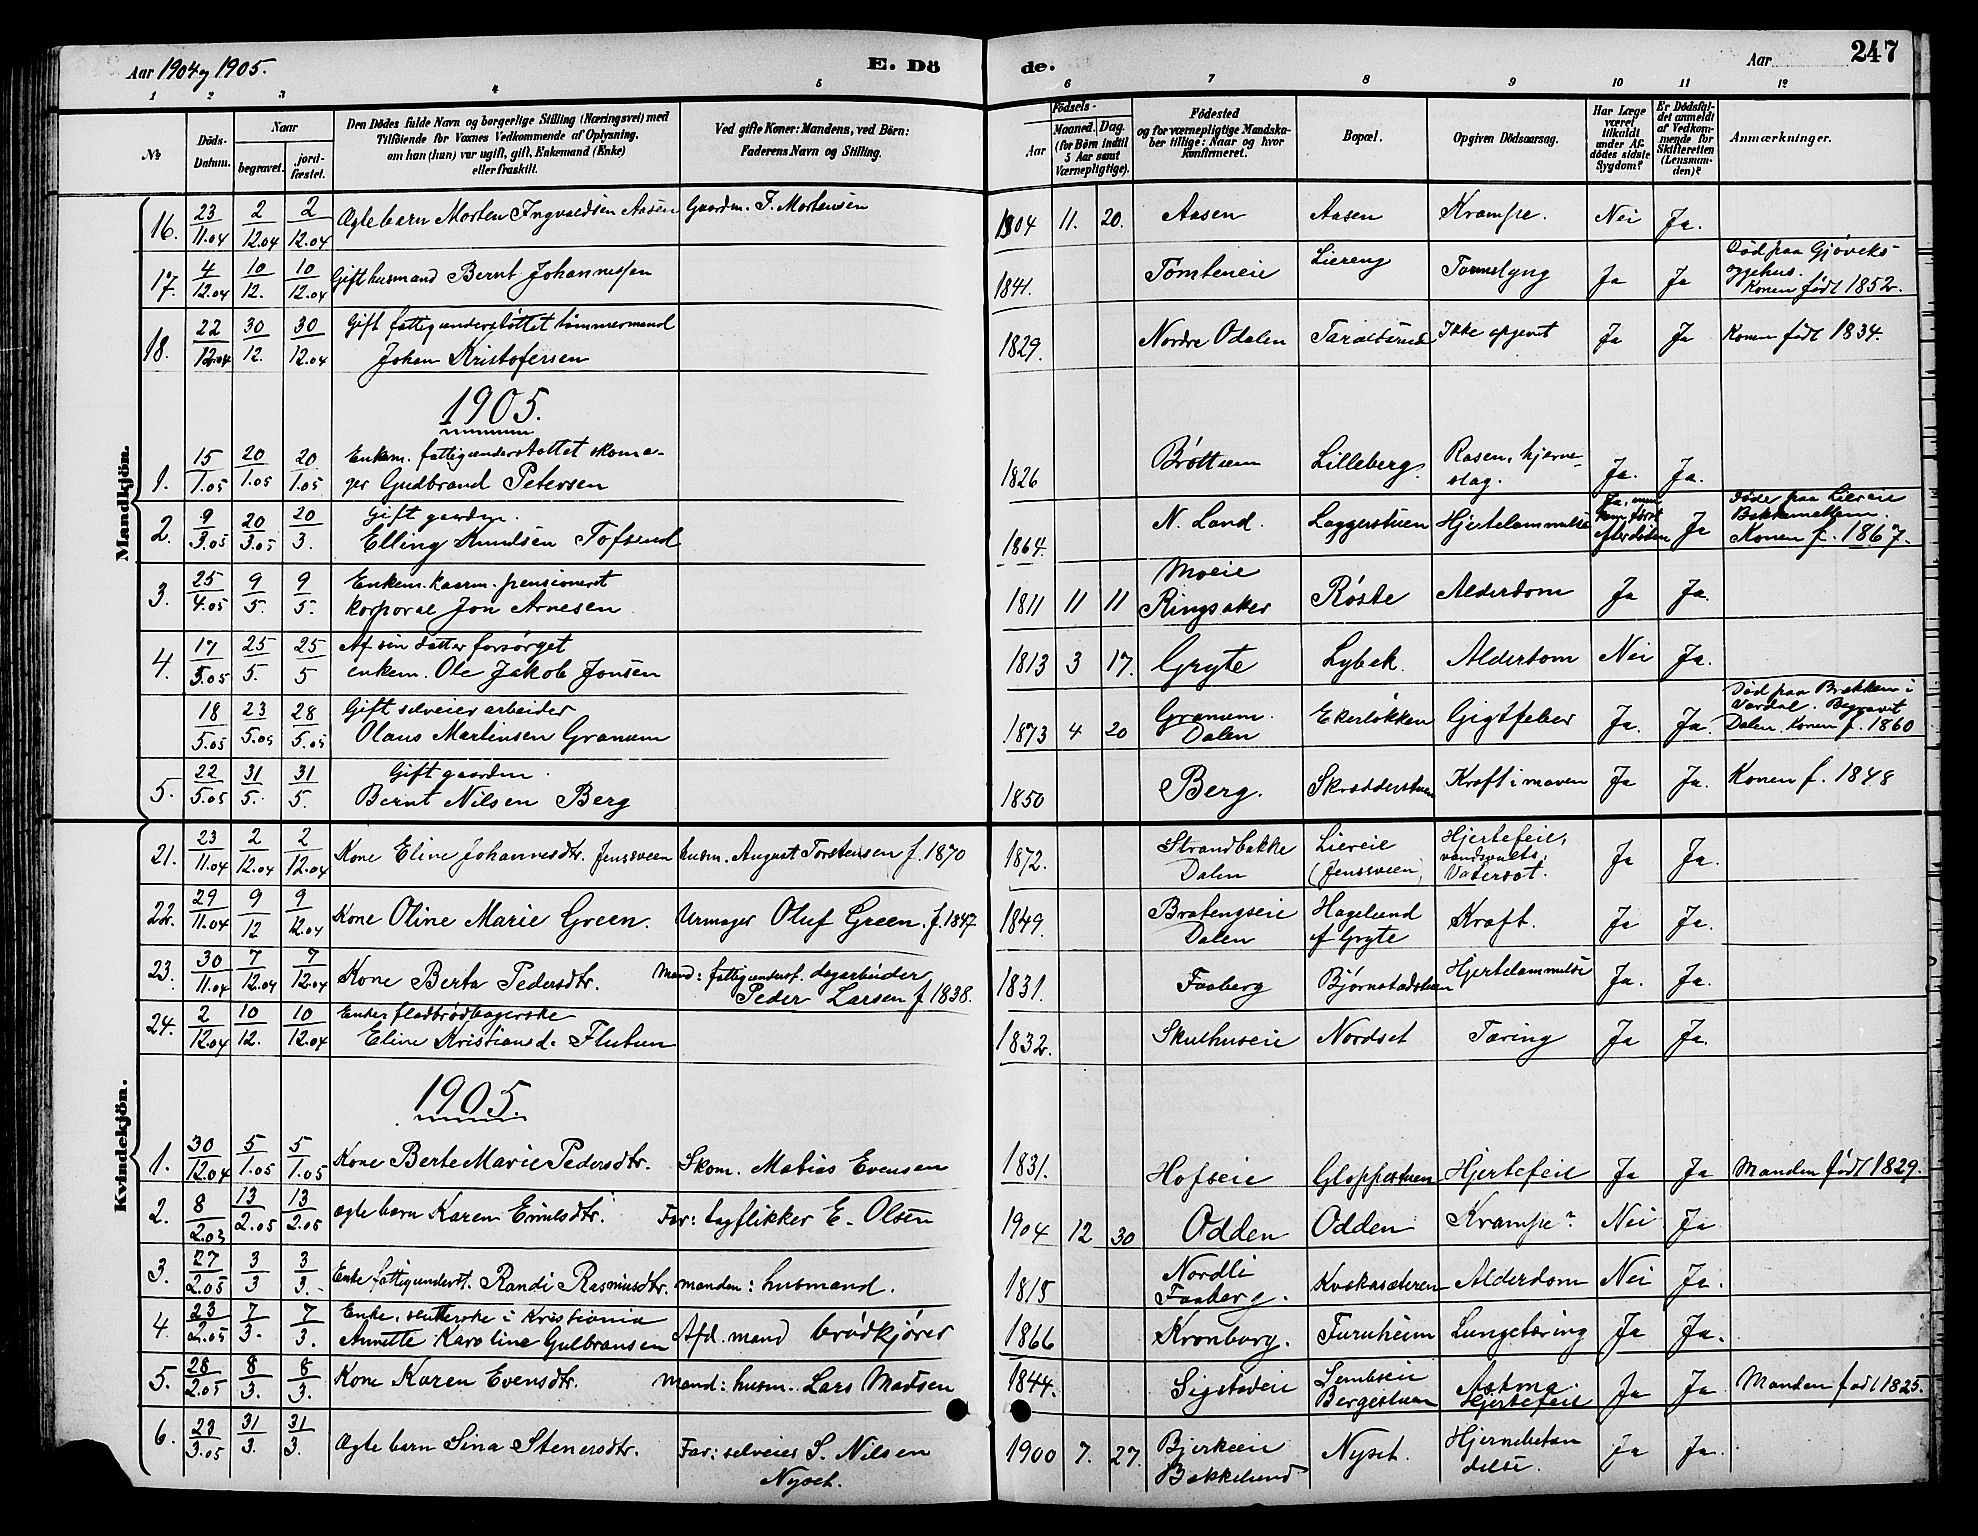 Aar 1904 og 1905. E. Dö de. Aar 247
1 2 3 4 5 6 7 8 9 10 11 12
№ Döds-Datum. Naar begravet. jordfæstet. Den Dödes fulde Navn og borgerlige Stilling (Næringsvei) med Tilföiende for Voxnes Vedkommende af Oplysning, om han (hun) var ugift, gift, Enkemand (Enke) eller fraskilt. Ved gifte Koner: Mandens, ved Börn: Faderens Navn og Stilling. Födsels- Aar Maaned. Dag. (for Börn indtil 5 Aar samt Værnepligtige). Födested og for værnepligtige Mandskaber tillige: Naar og hvor konfirmeret. Bopæl. Opgiven Dödsaarsag. Har Læge været tilkaldt under Afdödes sidste Sygdom? Er Dödsfaldet anmeldt af Vedkommende for Skifteretten (Lensmanden)? Anmærkninger.
Mandkjön.
16. 23/11.04 2/12.04 2/12.04 Ægte barn Morten Ingvaldsen Aasen Gaardm. I. Mortensen 1904 11. 20. Aasen Aasen Krampe. Nei Ja.
17. 4/12.04 10/12. 10/12.04 Gift husmand Bernt Johannessen 1841. Tomteneie Liereng Tarmslyng Ja Ja Död paa Gjöviks sygehus. Konen födt 1852.
18. 22/12.04 30/12. 30/12.04 Gift fattigunderstöttet tömmermand
Johan Kristofersen 1829. Nordre Odalen Taraldsrud Ikke opgivet Ja Ja Konen födt 1834.
1905.
1. 15/1.05 20/1.05 20/1.05 Enkem. fattigunderstöttet skoma-
ger Gudbrand Petersen 1826 Bröttum Lilleberg. Rosen, hjerne-
slag. Ja. Ja.
2. 9/3.05 20/3.05 20/3. Gift gaardm.
Elling Knudsen Tofsrud 1864. N. Land. Laggerstuen Hjertelammelse Ja, men kom först efter döden Ja Döde paa Liereie Bakkemellem. Konen f. 1867.
3. 25/4.05 9/5. 9/5. Enkem. kaarm. pensioneret
korporal Jon Arnesen 1811 11 11 Moeie
Ringsaker Röste Alderdom Ja Ja.
4. 17/5.05 25/5. 25/5 Af sin datter forsörget
enkem. Ole Jakob Jonsen 1813 3 17. Gryte Lybek. Alderdom Nei Ja.
18/5.05 23/5.05 28/5.05 Gift selveier arbeider
Olaus Martinsen Granum 1873 4 20 Granum.
Dalen Ekerlökken Gigtfeber Ja. Ja. Död paa Brækken i Vardal. Begravet Dalen. Konen f. 1860
5. 22/5.05 31/5. 31/5. Gift gaardm.
Bernt Nilsen Berg 1850 Berg. Skrædderstuen Kræft i maven Ja Ja. Konen f. 1848
Kvindekjön.
21. 23/11.04 2/12.04 2/12.04 Kone Eline Johannesdtr. Jensveen husm. August Torstensen f. 1870 1872. Strandbakke
Dalen Liereie
(Jensveen) Hjertefeil, Ja Ja.
22. 29/11.04 9/12 9/12.04 Kone Oline Marie Green. Urmager Oluf Green. f. 1847 1849. Bratengseie
Dalen Hagelund
af Gryte Kræft. Ja Ja.
23. 30/11.04 7/12.04 7/12.04 Kone Berta Pedersdtr. Mand: fattigunderst. dagarbeider
Peder Larsen f 1838. 1831. Faaberg Björnstadstuen Hjertelammelse Ja. Ja.
24. 2/12.04 10/12. 10/12.04 Enke, fladbrödbagerske
Eline Kristiansd. Flutun 1832. Skulhuseie Nordset Tæring Ja Ja.
1905.
1. 30/12.04 5/1.05 5/1.05 Kone Berte Marie Pedersdtr. Skom. Matias Evensen 1831. Hofseie Gloppestuen Hjertefeil Ja Ja Manden födt 1829.
2. 8/2.05 13/2.05 13/2.05 ægte barn Karen Emilsdtr. Far: tagflikker E. Olsen 1904 12 30 Odden Odden Krampe? Nei Ja
3. 27/2.05 3/3 3/3. Enke fattigunderst. Randi Rasmusdtr. manden: husmand. 1815 Nordli
Faaberg. Kvækasæteren Alderdom Nei Ja.
4. 23/2.05 7/3. 7/3. Enke, slutterske i Kristiania
Annette Karoline Gulbransen Afd. mand brödkjörer 1866 Kronborg. Furuheim Lungetæring Ja Ja.
5. 28/2.05 8/3. 8/3. Kone Karen Evensdtr. Mand: husm. Lars Madsen 1844. Sigstadeie Sembseie
Bergestuen Astma.
Hjertefeil Ja Ja Manden födt 1825.
6. 23/3.05 31/3. 31/3. Ægte barn Sina Stenersdtr. Far: selveier S. Nilsen
Nyset. 1900 7. 27. Bjerkeeie
Bakkelund Nyset. Hjernebetæn
delse. Ja Ja.